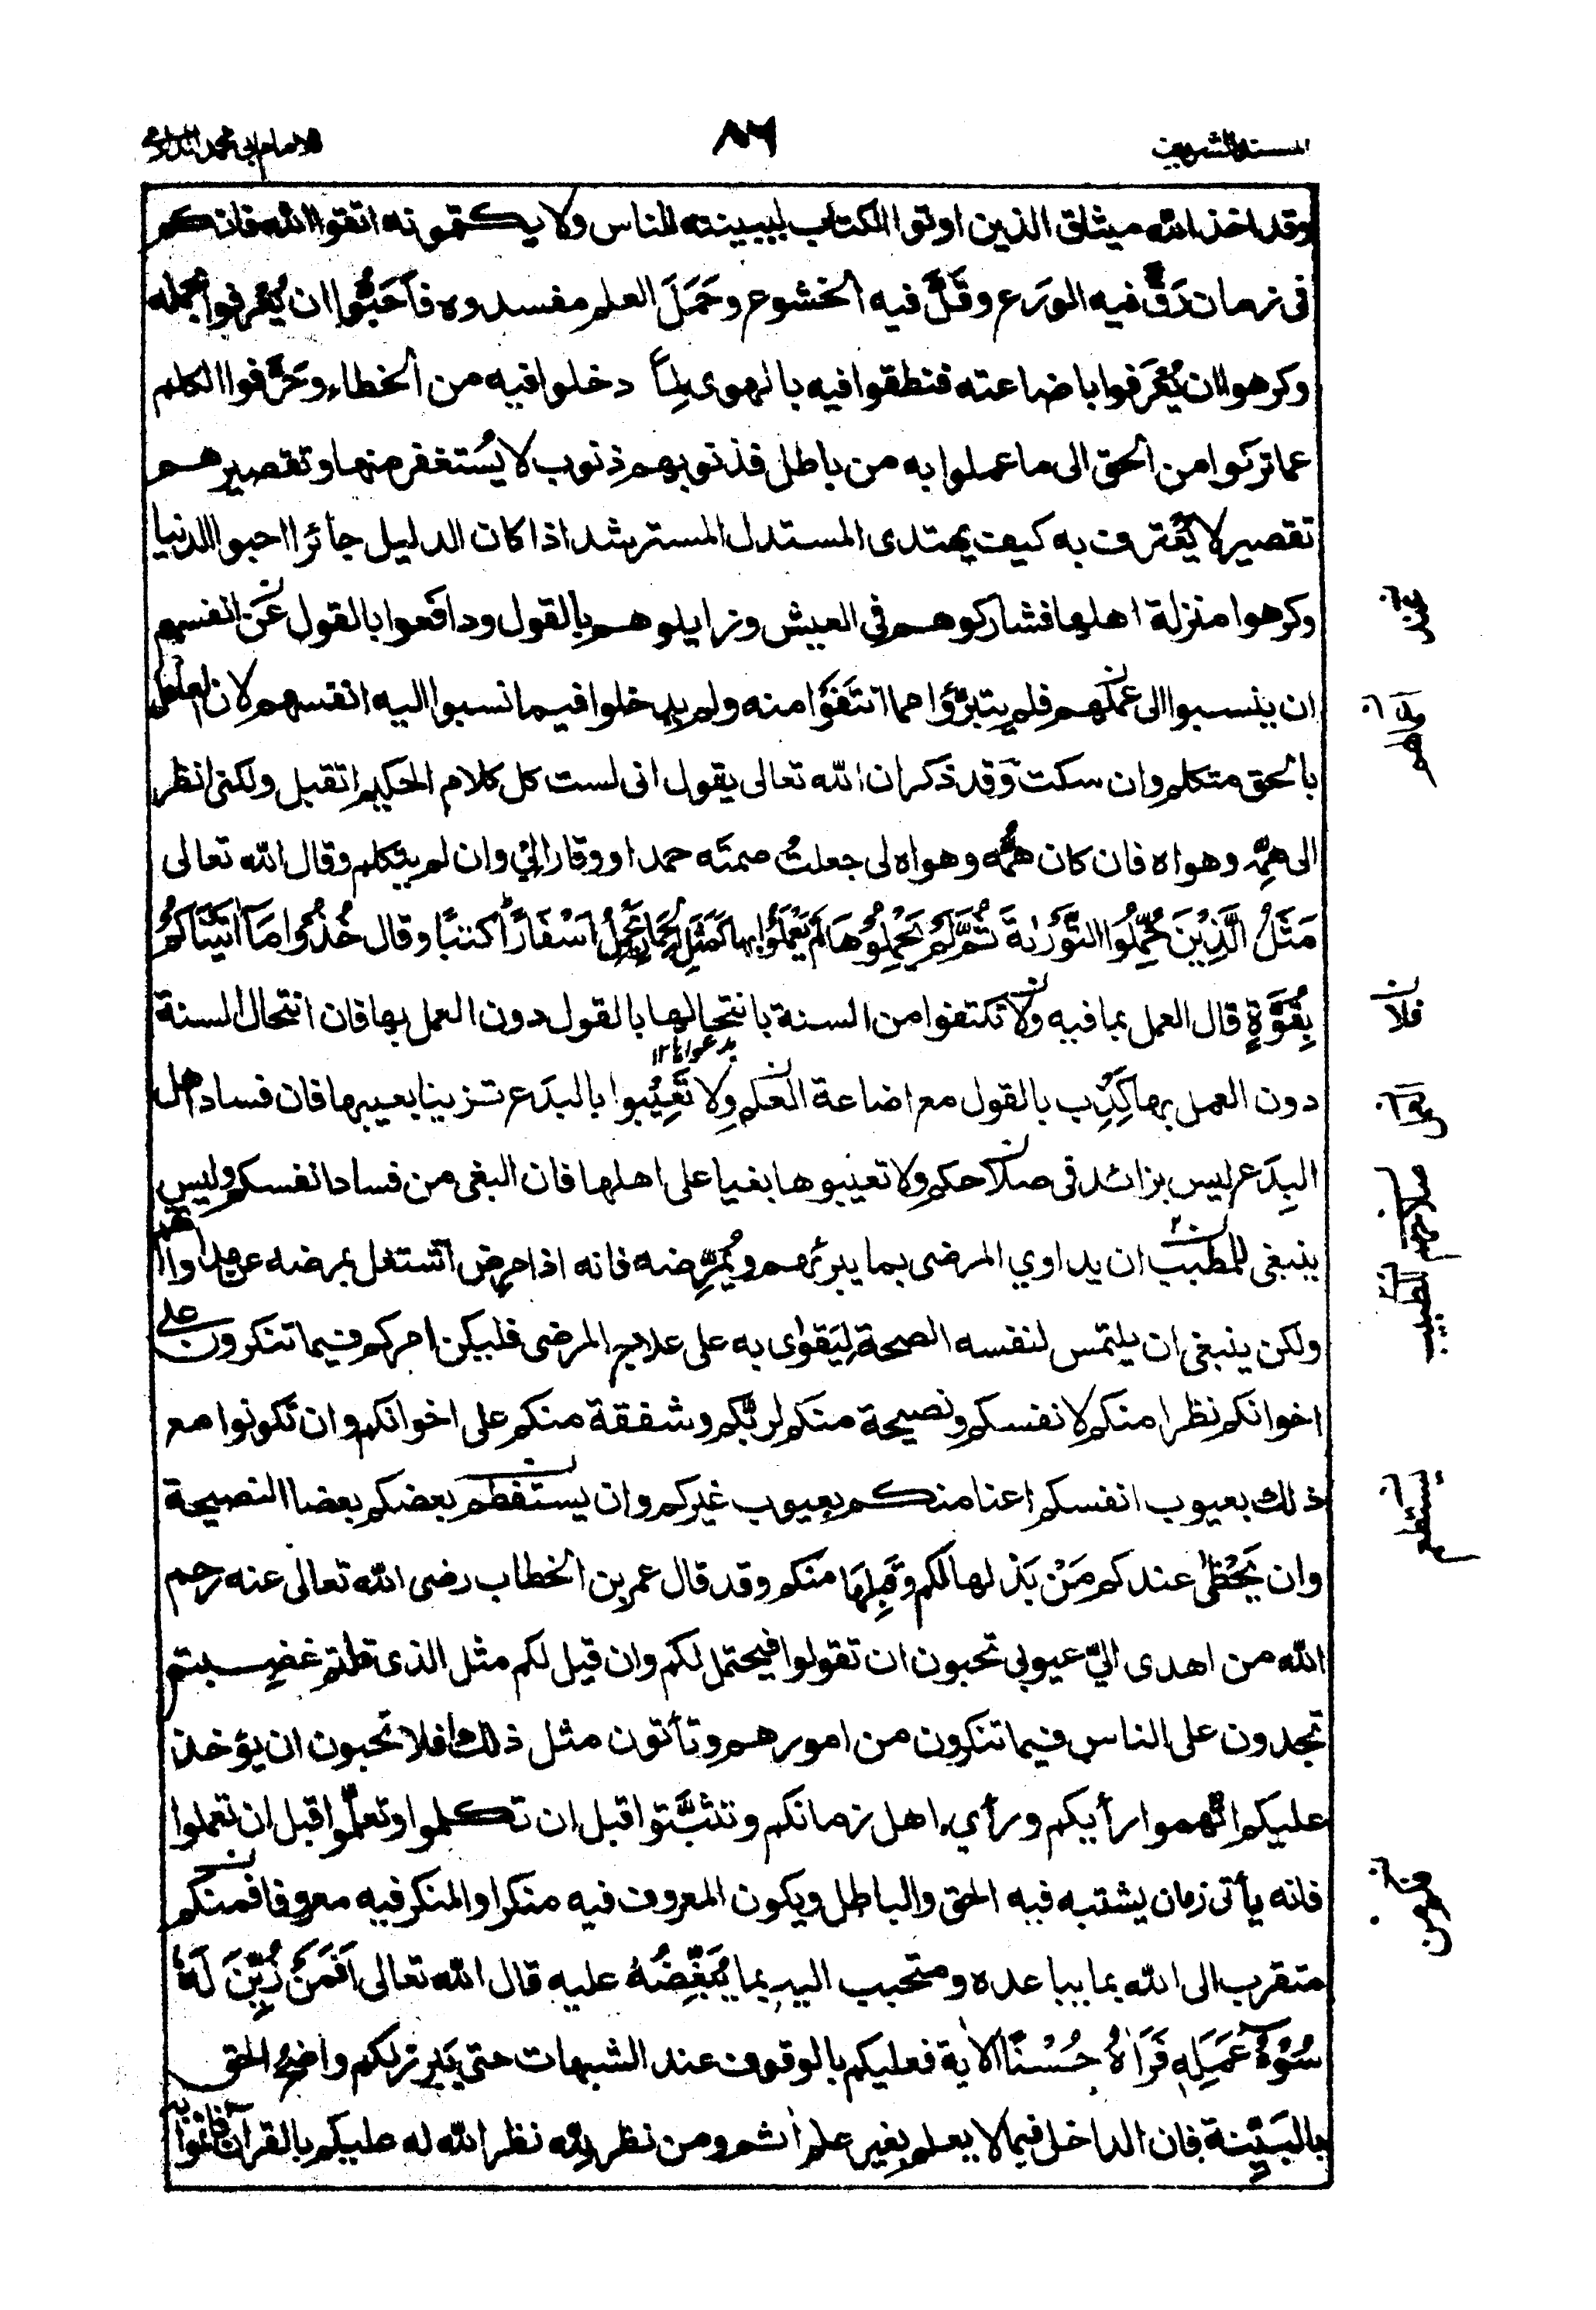 المسند الشريف
٨٦
للامام ابي محمد الدارمي
وقد اخذ الله ميثاق الذين اوتوا الكتاب ليبيننه للناس ولا يكتمونه اتقوا الله فانكم
في زمان دَقَّ فيه الورَع وقَلَّ فيه الخشوع وحَمَلَ العلم مفسدوه فاَحَبُّوا ان يُعْرَفوا بحمله
وكرهوا ان يُعْرَفوا باضاعته فنطقوا فيه بالهوى لِمَا دخلوا فيه من الخطاء وحَرَّفوا الكلم
عما تركوا من الحق الى ما عملوا به من باطل فذنوبهم ذنوب لا يُستغفر منها وتقصيرهم
تقصير لا يُعْترف به كيف يهتدى المستدل المسترشد اذا كان الدليل جائرا احبوا الدنيا
وكرهوا منزلة اهلها فشاركوهم في العيش وزايلوهم بالقول ودافَعوا بالقول عَن انفسهم
ان ينسبوا الى عملهم فلم يتبرَّؤا مما انتَفَوْا منه ولم يدخلوا فيما نسبوا اليه انفسهم لان العامل
بالحق متكلم وان سكت وَقد ذكر ان الله تعالى يقول انى لست كل كلام الحكيم اتقبل ولكنى انظر
الى همِّه وهواه فان كان همُّه وهواه لى جعلتُ صمتَه حمدا ووقارا لِيْ وان لم يتكلم وقال الله تعالى
مَثَلُ الَّذِيْنَ حُمِّلُوا التَّوْرٰىةَ ثُمَّ لَمْ يَحْمِلُوْهَا لَمْ يَعْمَلُوْا بِهَا كَمَثَلِ الْحِمَارِ يَحْمِلُ اَسْفَارًا كتبًا وقال خُذُوْا مَآ اٰتَيْنَاكُمْ
بِقُوَّةٍ قال العمل بما فيه ولا تكتفوا من السنة بانتحالها بالقول دون العمل بها فان انتحال السنة
دون العمل بها كَذِب بالقول مع اضاعة العلم ولا تَعِيْبوا بالبدَع تزينا بعيبها فان فساد اهل
البِدَع ليس بزائد فى صلاحكم ولا تعيبوها بغيا على اهلها فان البغى من فساد انفسكم وليس
ينبغى للمطبب ان يداوي المرضى بما يبرئهم ويُمَرِّضه فانه اذا مرض اشتغل بمرضه عن مداواتهم
ولكن ينبغى ان يلتمس لنفسه الصحة لِيَقوٰى به على علاج المرضى فليكن امركم فيما تنكرون على
اخوانكم نظرا منكم لانفسكم ونصيحة منكم لربِّكم وشفقة منكم على اخوانكم وان تكونوا مع
ذلك بعيوب انفسكم اعنا منكم بعيوب غيركم وان يستفطم بعضكم بعضا النصيحة
وان يَحْظٰى عندكم مَنْ بَذلها لكم وقَبِلَهَا منكم وقد قال عمر بن الخطاب رضى الله تعالى عنه رحم
الله من اهدى اليَّ عيوبى تحبون ان تقولوا فيحتمل لكم وان قيل لكم مثل الذى قلتم غضبتم
تجدون على الناس فيما تنكرون من امورهم وتأتون مثل ذلك افلا تحبون ان يؤخذ
عليكم اتَّهموا رأيكم ورأي اهل زمانكم وتثبَّتوا قبل ان تكلموا وتعلَّموا قبل ان تعملوا
فانه يأتى زمان يشتبه فيه الحق والباطل ويكون المعروف فيه منكرا والمنكر فيه معروفا فمنكم
متقرب الى الله بما يباعده ومتحبب اليه بما يُبَغِّضُهُ عليه قال الله تعالى اَفَمَنْ زُيِّنَ لَهٗ
سُوْٓءُ عَمَلِهٖ فَرَاٰهُ حُسْنًا الاٰية فعليكم بالوقوف عند الشبهات حتى يَبرز لكم واضحُ الحق
بالبَيِّنة فان الداخل فيما لا يعلم بغير علم اٰثم ومن نظر لِلّٰه نظر الله له عليكم بالقرآن فائتموا به
فلا
صلاحكم
الطبيب
يستطعم